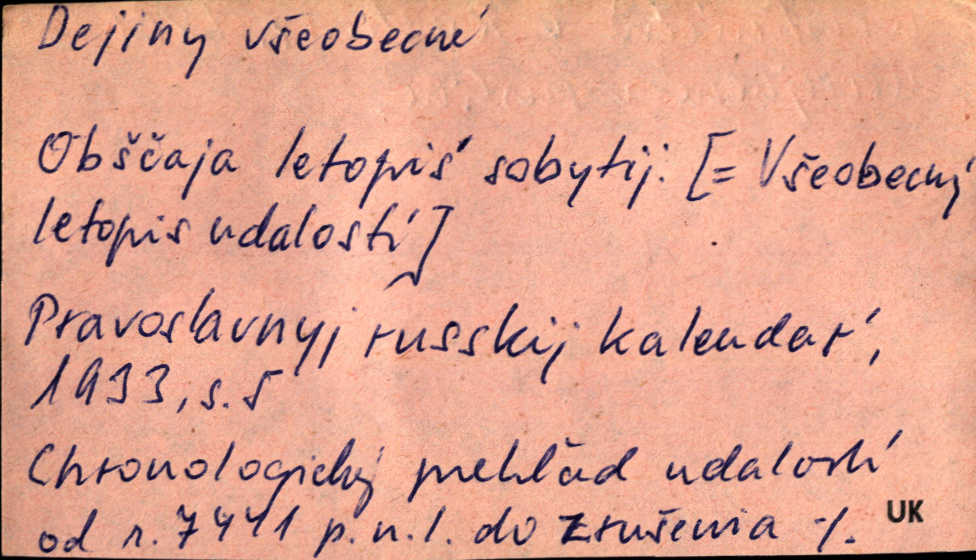 Dejiny všeobecné
Obščaja letopiś sobytij. [= Všeobecný
letopis udalostí]
Pravoslavnyj russkij kalendař,
1933, s. 5
Chronologický prehľad udalostí
od r. 7441 p.n.l. do zrušenia ·/.
UK